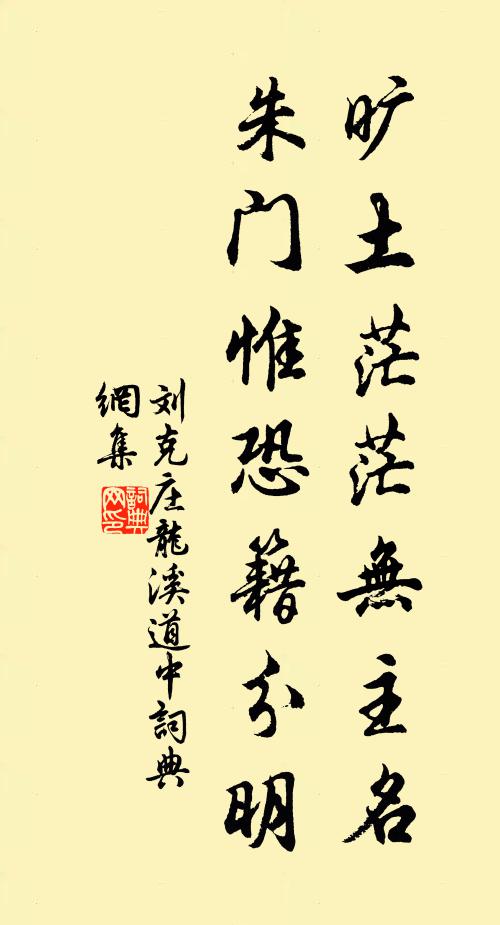 旷土茫茫無主名
朱门惟恐籍分明
刘克庄龍溪道中詞典
網集
詞典网印